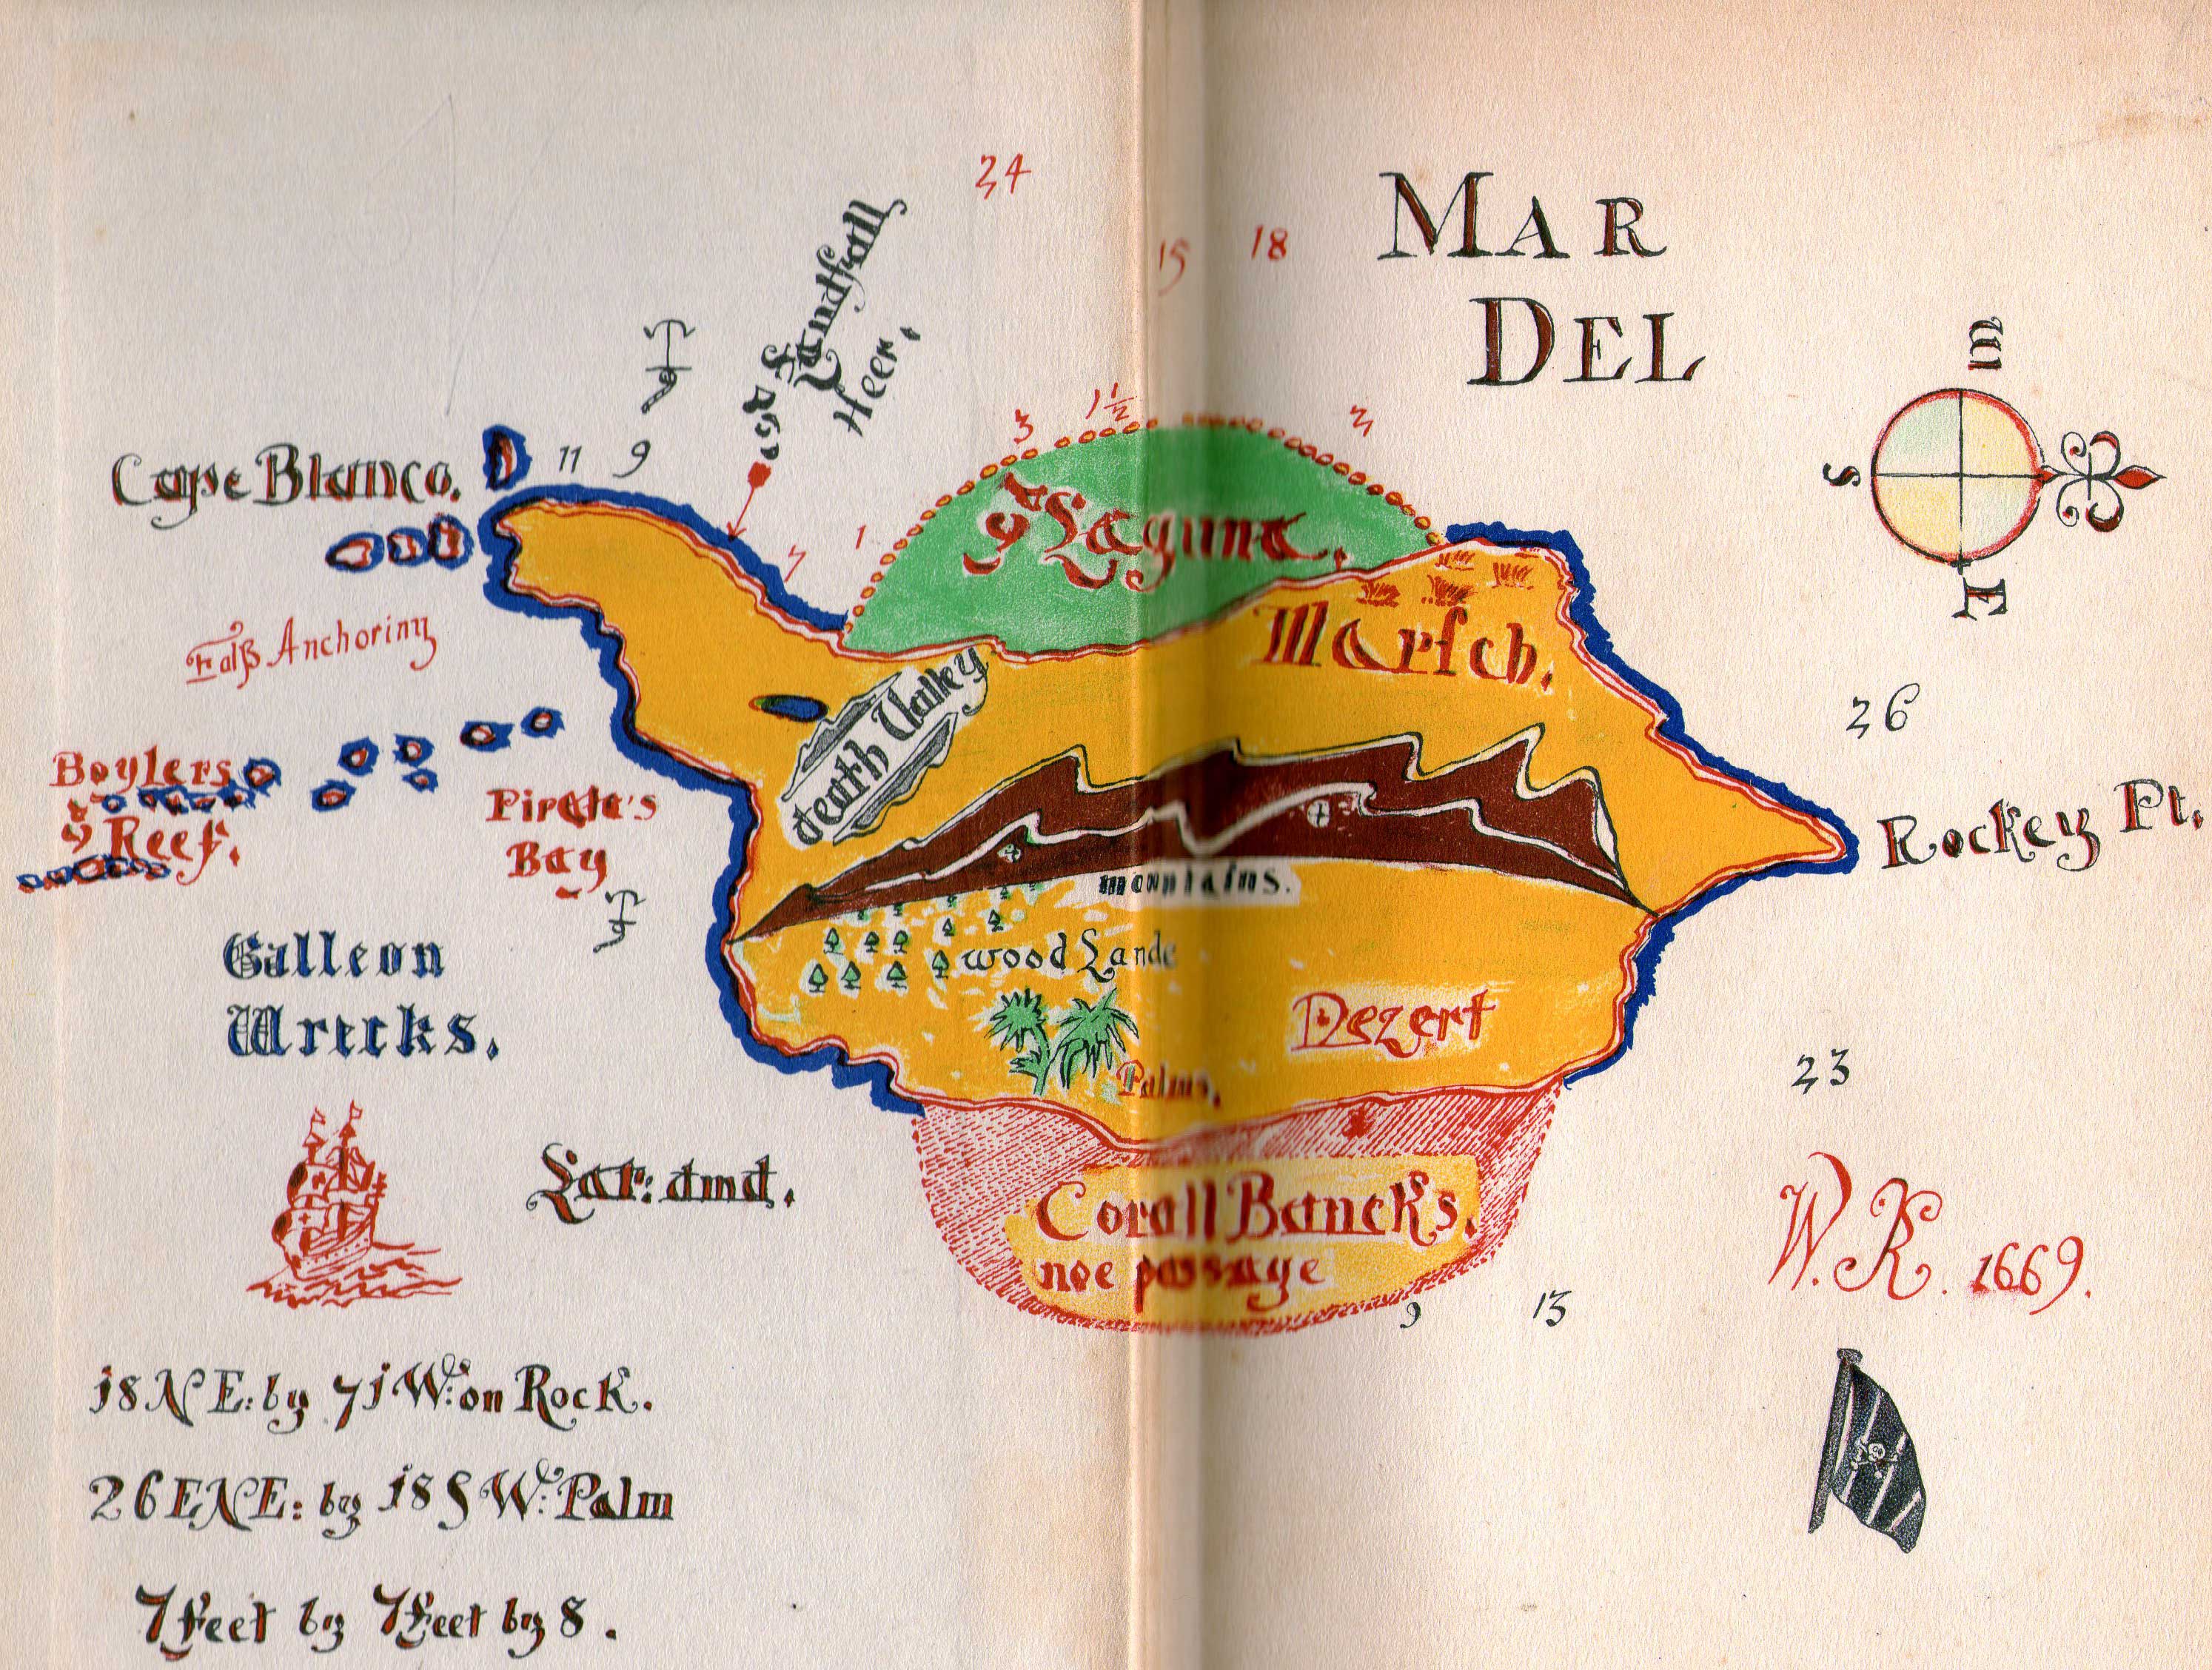 24
15
18
MAR
DEL
Landfall
Heer.
Cape Blanco.
11
9
1
7
3
1½
2
m
S
E
ye Laguna.
Marsch.
Falß Anchoring
death Valley
26
Boylers
Reef.
Pirate's
Bay
Rockey Pt.
mountains.
Galleon
Wrecks.
wood Lande
Dezert
Palms.
23
Lat: dmd.
Corall Bancks.
noe passage
9
13
W. K. 1669.
18 NE: by 71 W: on Rock.
26 ENE: by 18 SW: Palm
7 Feet by 7 Feet by 8.